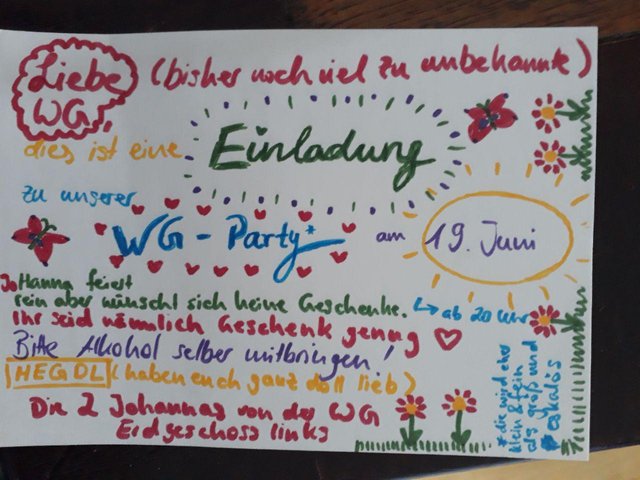 Liebe WG, (bisher noch viel zu unbekannte)
dies ist eine Einladung
zu unserer
WG-Party* am 19. Juni
JoHanna feiert
rein aber wünscht sich keine Geschenke. ↳ ab 20 Uhr
Ihr seid nämlich Geschenk genug ♡
Bitte Alkohol selber mitbringen!
HEGDL (haben euch ganz doll lieb)
Die 2 Johannas von der WG
Erdgeschoss links
*die wird eher
klein & fein
als groß und
eskalös